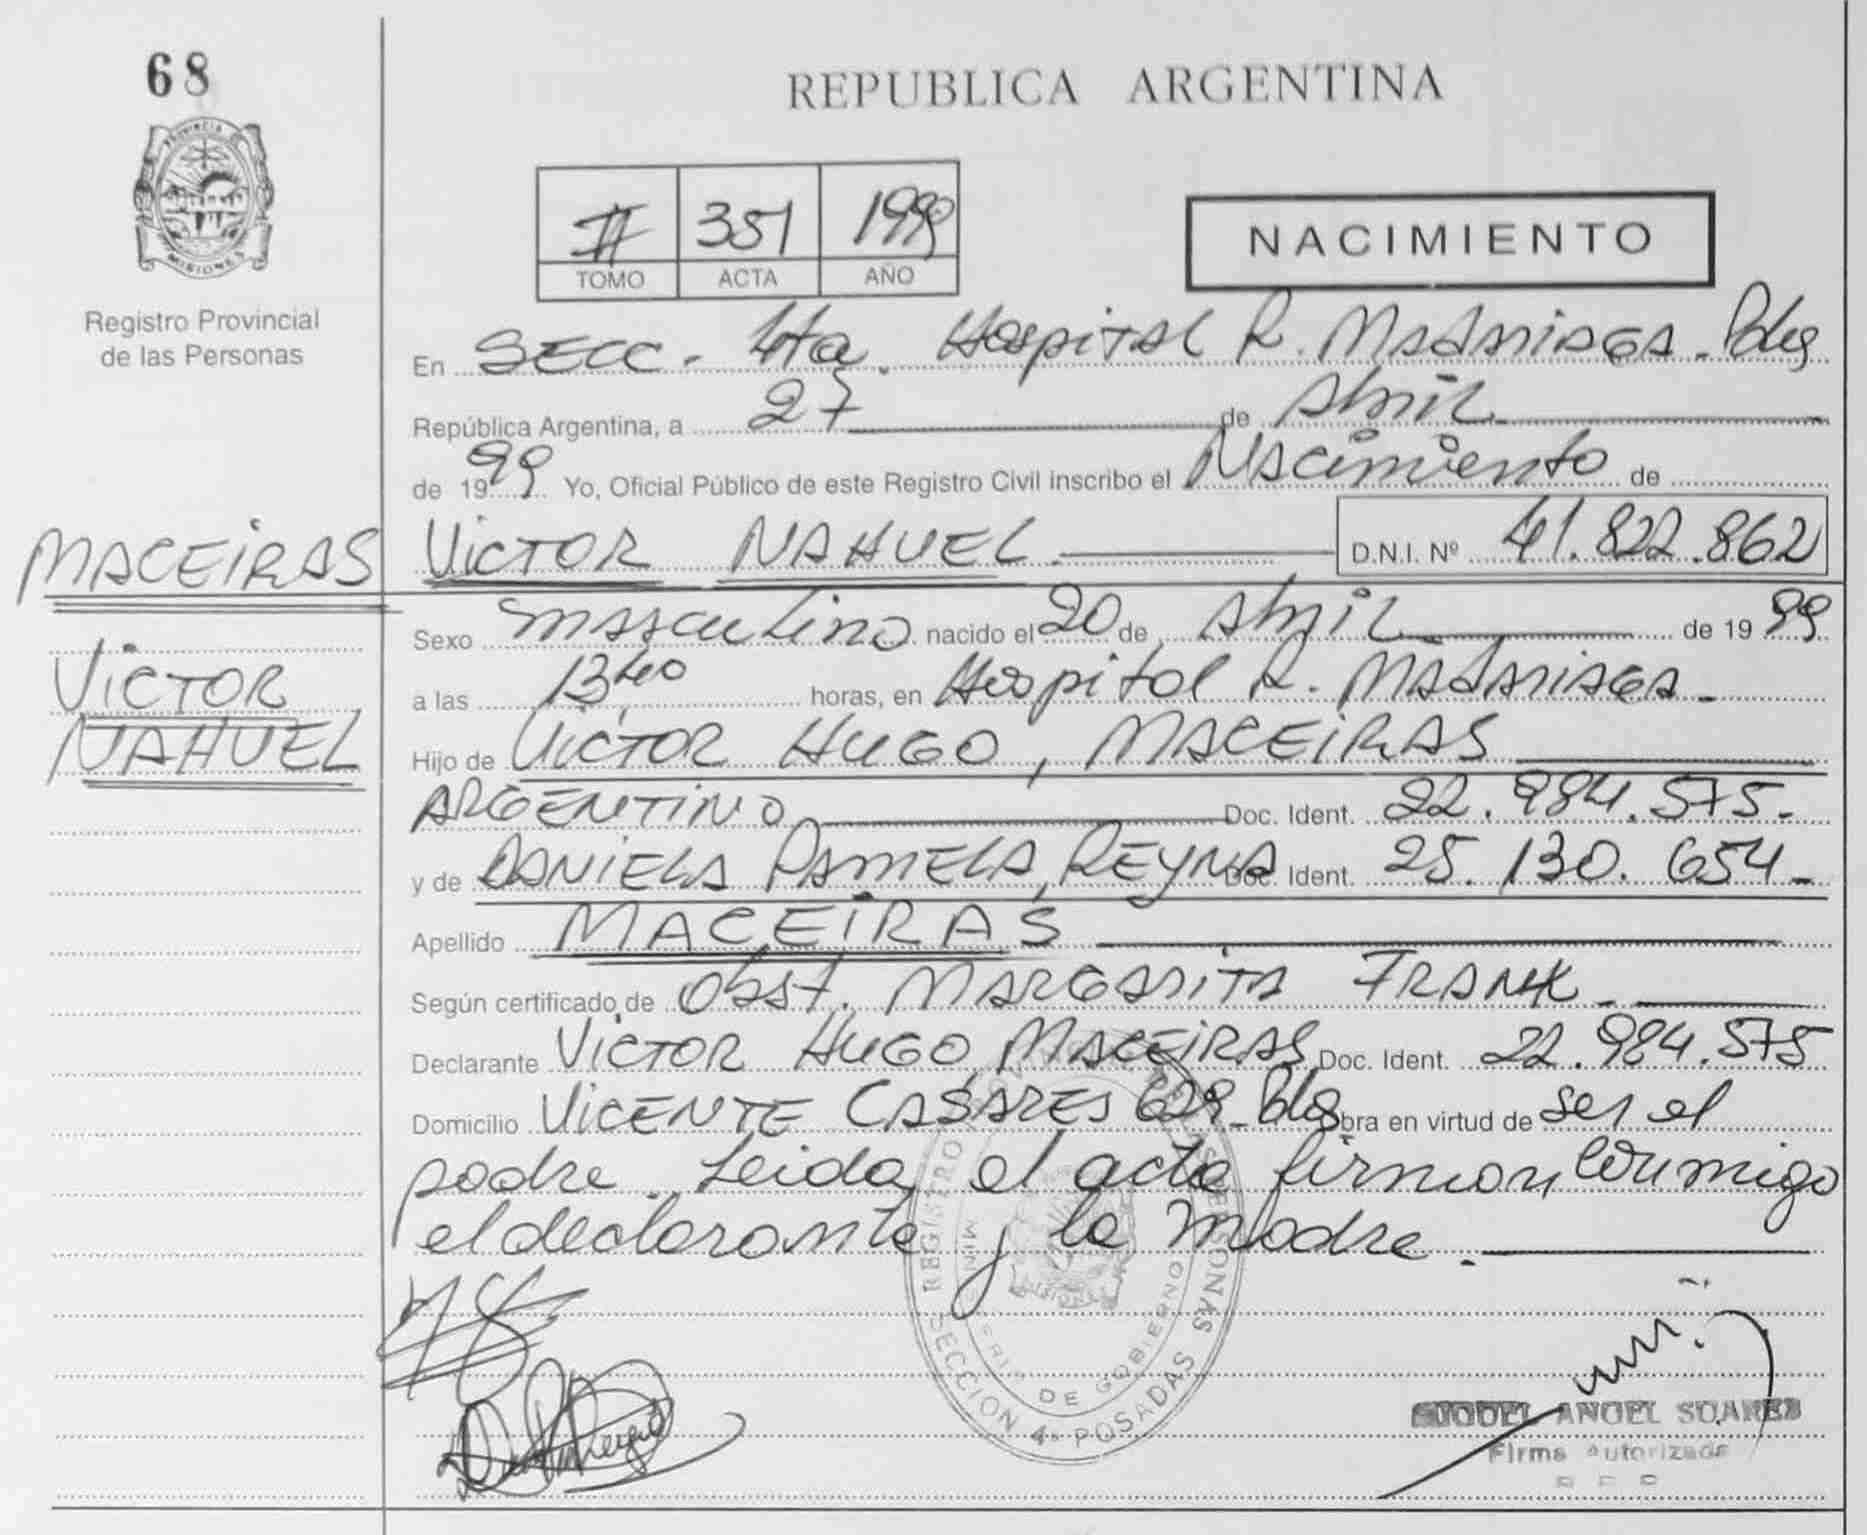 68
REPUBLICA ARGENTINA
PROVINCIA
MISIONES
Registro Provincial
de las Personas
II 351 1999
TOMO ACTA AÑO
NACIMIENTO
En Secc. 4ta. Hospital R. Madariaga. Pdas
República Argentina, a 27 de Abril
de 1999 Yo, Oficial Público de este Registro Civil inscribo el Nacimiento de
MACEIRAS VICTOR NAHUEL D.N.I. Nº 41.822.862
Sexo masculino nacido el 20 de Abril de 1999
VICTOR
a las 13,40 horas, en Hospital R. Madariaga
NAHUEL
Hijo de VICTOR HUGO, MACEIRAS
ARGENTINO Doc. Ident. 22.984.575
y de DANIELA PAMELA, REYNA Doc. Ident. 25.130.654
Apellido MACEIRAS
Según certificado de Obst. MARGARITA FRANK
Declarante VICTOR HUGO, MACEIRAS Doc. Ident. 22.984.575
Domicilio VICENTE CASARES 629 Pdas Obra en virtud de ser el
padre. Leida el acta firman conmigo
el declarante y la madre.
REGISTRO PROVINCIAL DE LAS PERSONAS
MINISTERIO DE GOBIERNO
SECCION 4ª POSADAS
ANGEL SUAREZ
Firma Autorizada